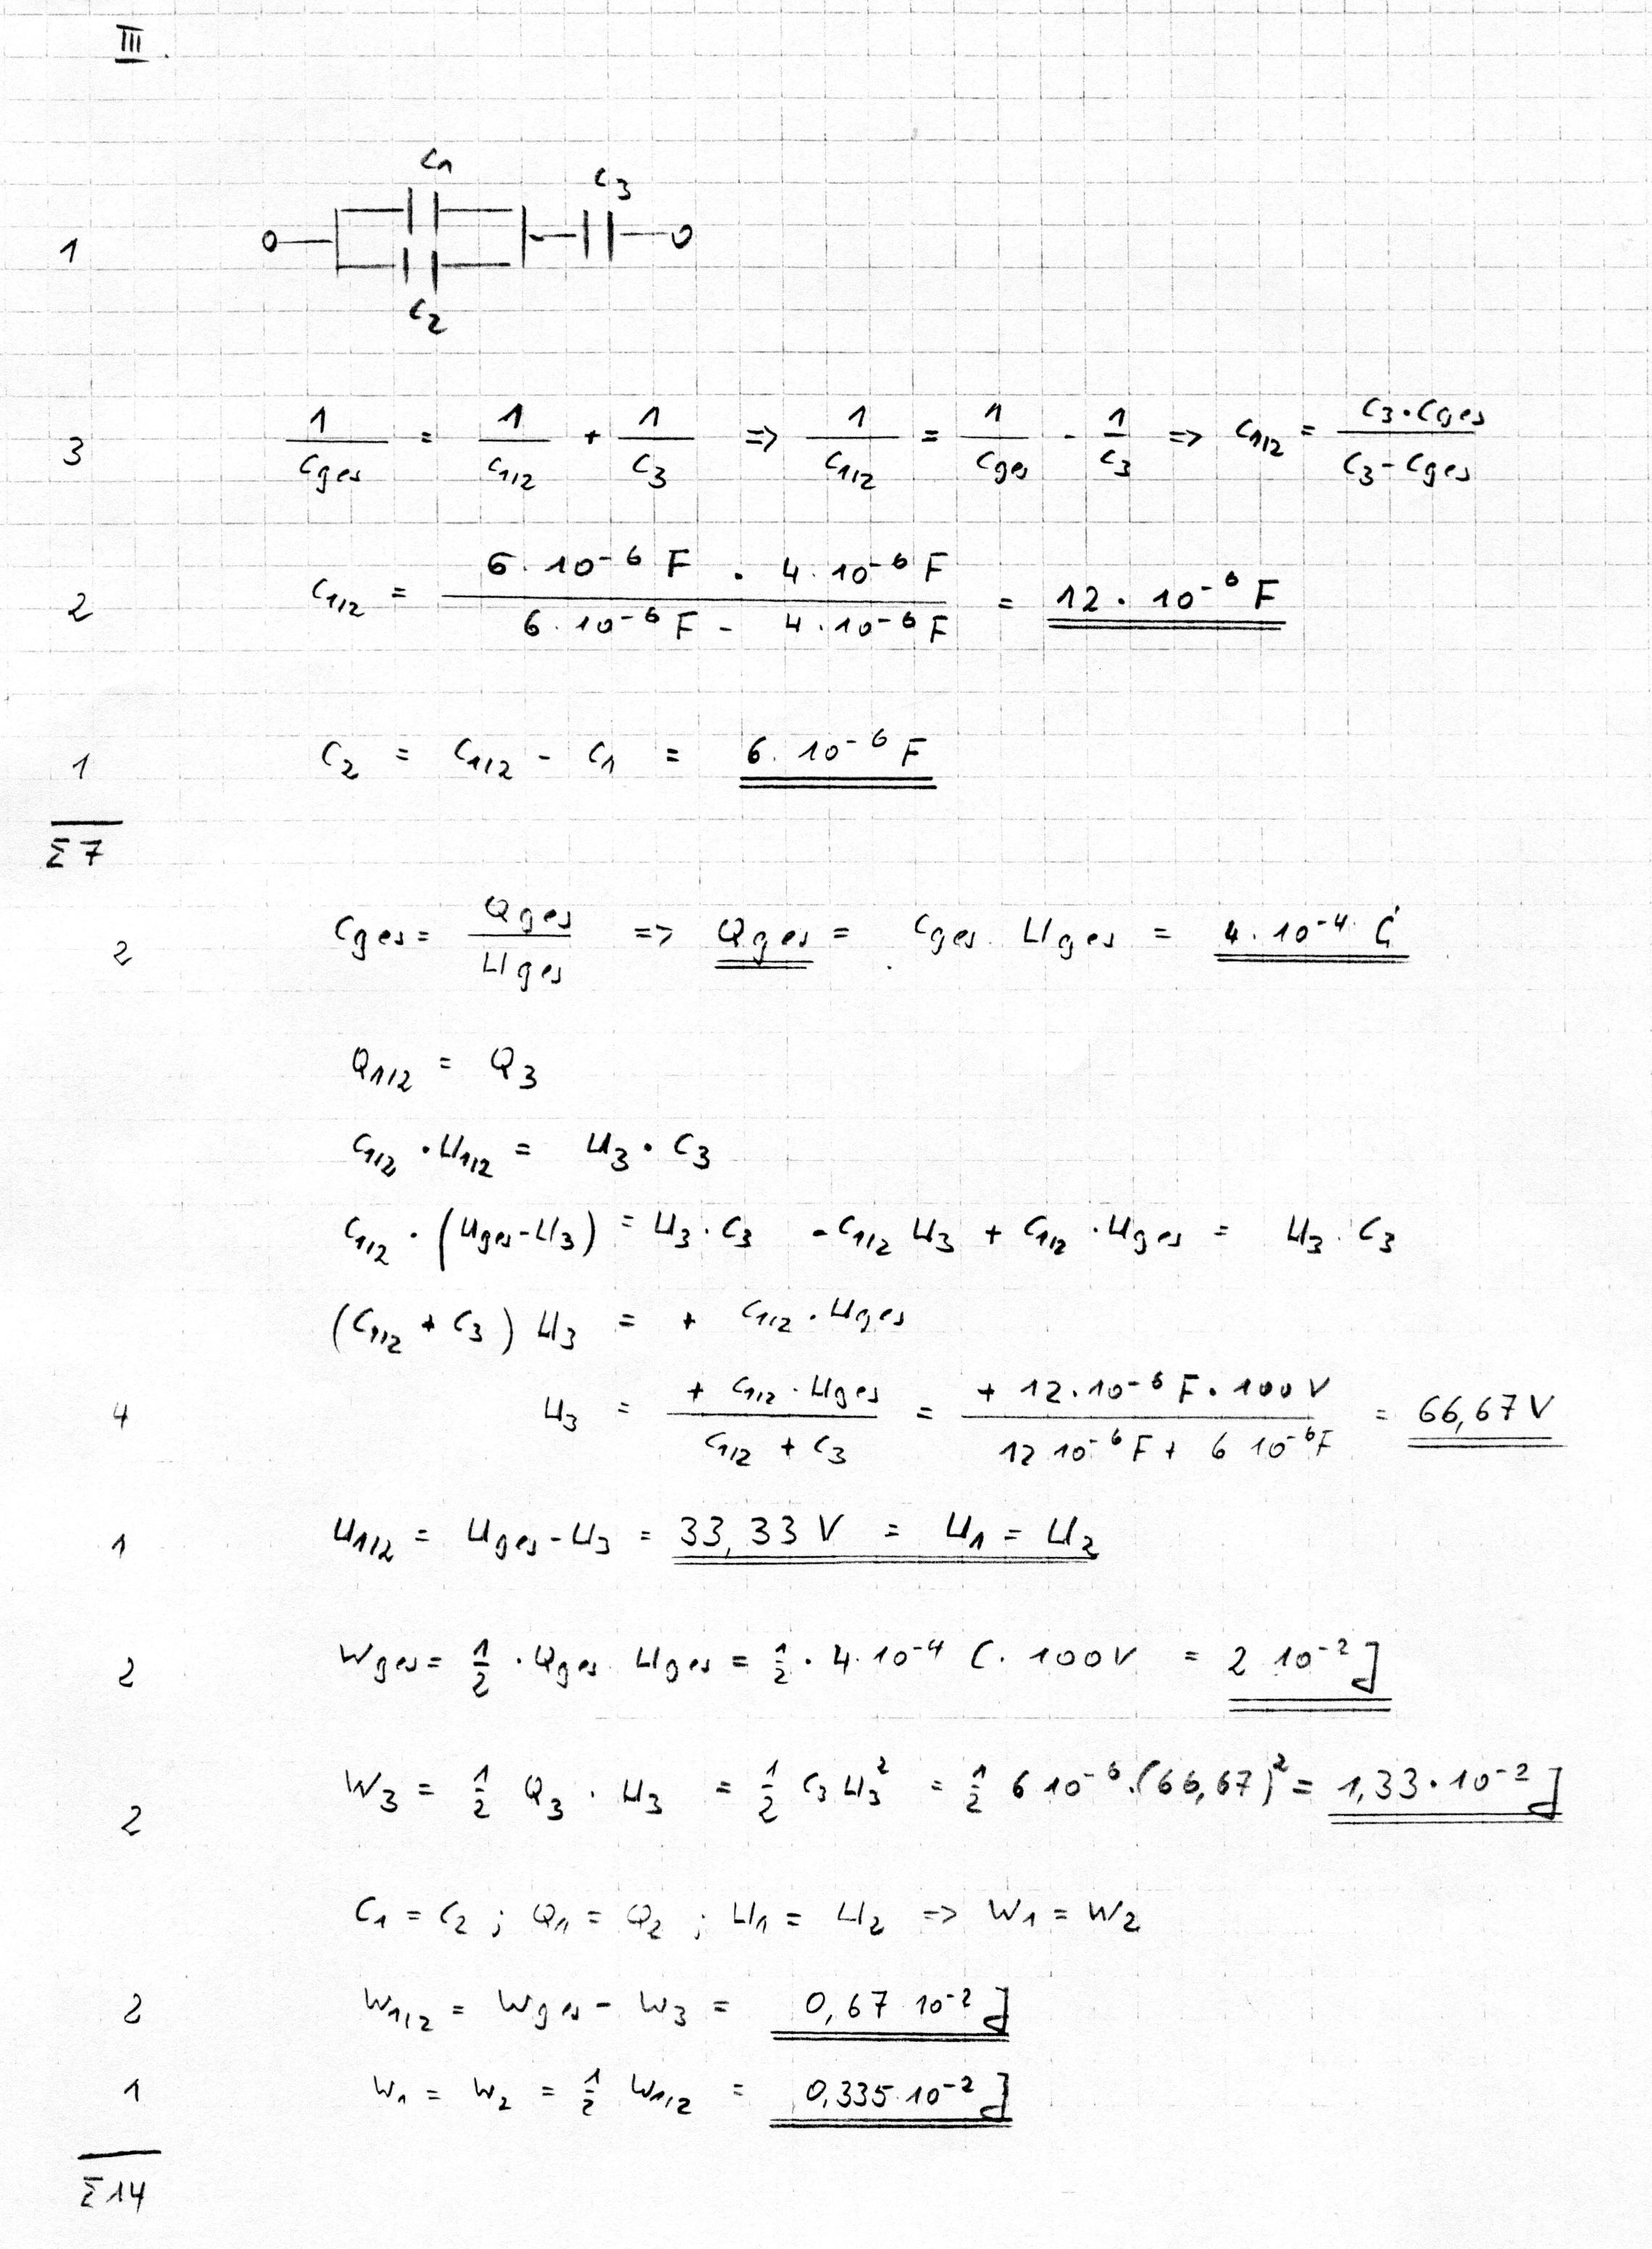 III.
C1
C3
1
C2
3 1/Cges = 1/C1/2 + 1/C3 => 1/C1/2 = 1/Cges - 1/C3 => C1/2 = C3·Cges / C3-Cges
2 C1/2 = 6·10^-6 F · 4·10^-6 F / 6·10^-6 F - 4·10^-6 F = 12·10^-6 F
1 C2 = C1/2 - C1 = 6·10^-6 F
Σ 7
2 Cges = Qges/Uges => Qges = Cges·Uges = 4·10^-4 C
Q1/2 = Q3
C1/2 · U1/2 = U3 · C3
C1/2 · (Uges-U3) = U3·C3 -C1/2 U3 + C1/2 ·Uges = U3·C3
(C1/2 + C3) U3 = + C1/2 · Uges
4 U3 = + C1/2 · Uges / C1/2 + C3 = + 12·10^-6 F·100V / 12 10^-6 F + 6 10^-6 F = 66,67 V
1 U1/2 = Uges-U3 = 33,33 V = U1 = U2
2 Wges = 1/2 · Qges Uges = 1/2 · 4·10^-4 C·100V = 2 10^-2 J
2 W3 = 1/2 Q3 · U3 = 1/2 C3 U3^2 = 1/2 6 10^-6·(66,67)^2 = 1,33·10^-2 J
C1 = C2 ; Q1 = Q2 ; U1 = U2 => W1 = W2
2 W1/2 = Wges - W3 = 0,67 10^-2 J
1 W1 = W2 = 1/2 W1/2 = 0,335·10^-2 J
Σ 14